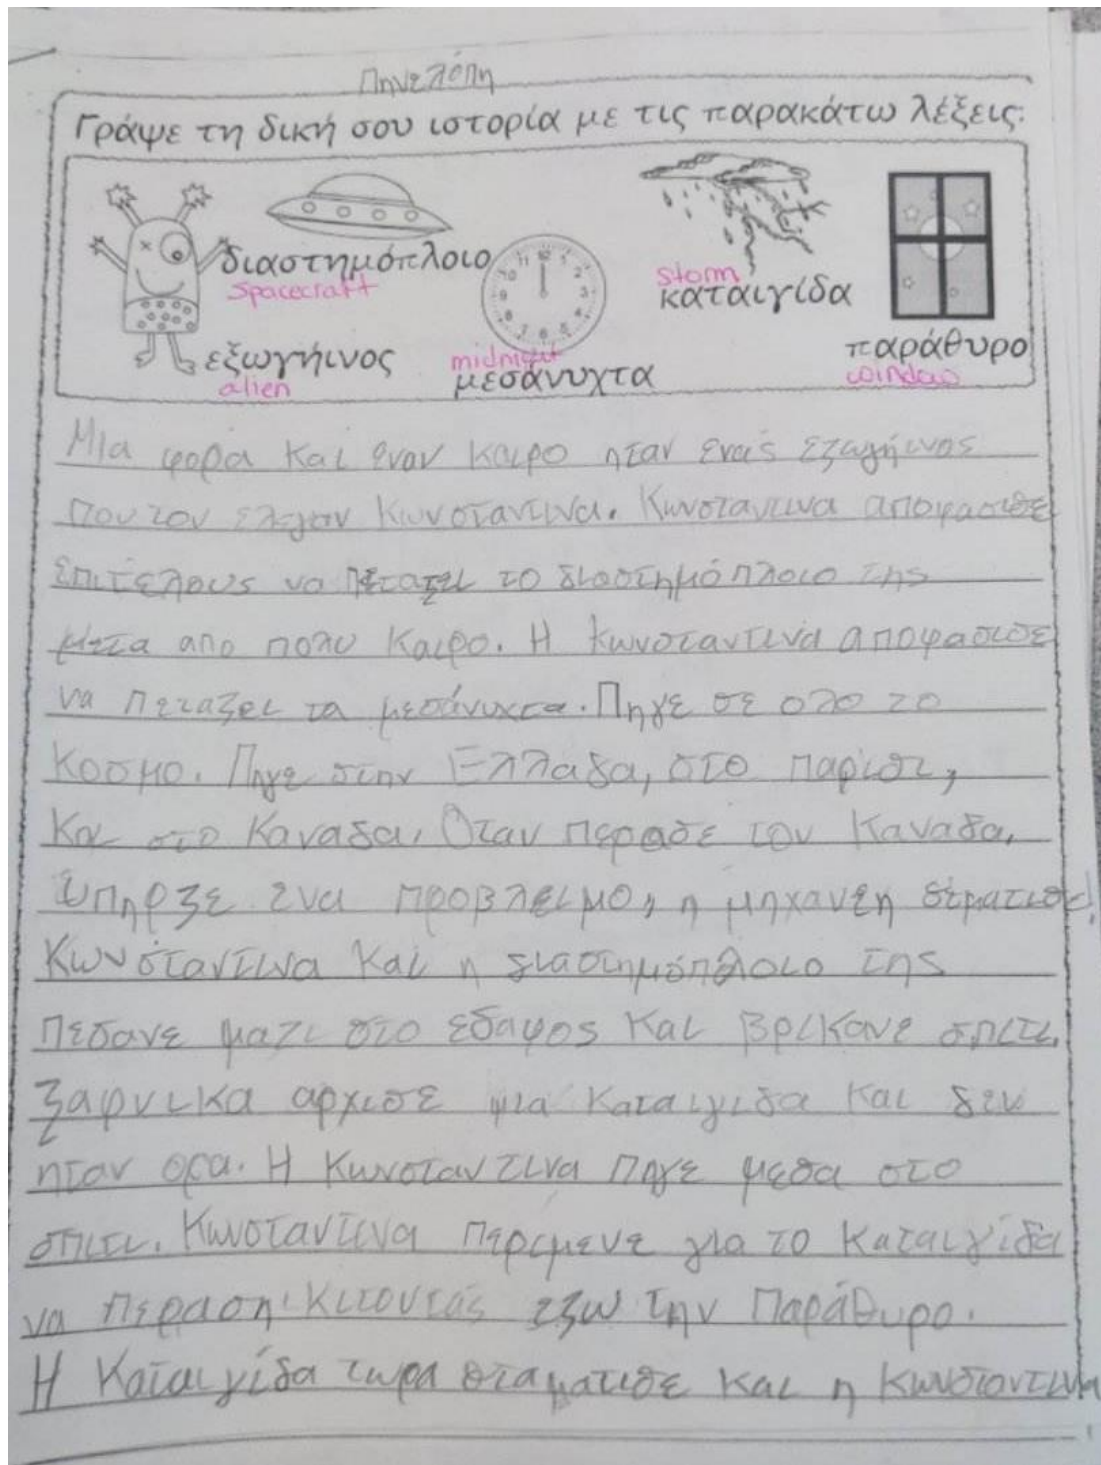 Πηνελόπη
Γράψε τη δική σου ιστορία με τις παρακάτω λέξεις:
διαστημόπλοιο
spacecraft
εξωγήινος
alien
12 11 10 9 8 7 6 5 4 3 2 1
midnight
μεσάνυχτα
storm
καταιγίδα
παράθυρο
window
Μια φορα και εναν καιρο ηταν ενας εξωγήινος
που τον ελεγαν Κωνσταντινα. Κωνσταντινα αποφασισε
επιτελους να πεταξει το διαστημόπλοιο της
μετα απο πολυ καιρο. Η Κωνσταντινα αποφασισε
να πεταξει τα μεσάνυχτα. Πηγε σε ολο το
κοσμο. Πηγε στην Ελλαδα, στο παρισι,
και στο Καναδα. Οταν περασε τον Καναδα,
υπηρξε ενα προβλειμο, η μηχανεη
Κωνσταντινα και η διαστημόπλοιο της
πεσανε μαζι στο εδαφος και βρικανε σπιτι.
ξαφνικα αρχισε μια καταιγιδα και δεν
ηταν ορα. Η Κωνσταντινα πηγε μεσα στο
σπιτι. Κωνσταντινα περιμενε για το καταιγίδα
να περαση κιτοντας εξω την Παράθυρο.
Η Καταιγίδα τωρα σταματισε και η Κωνσταντινα